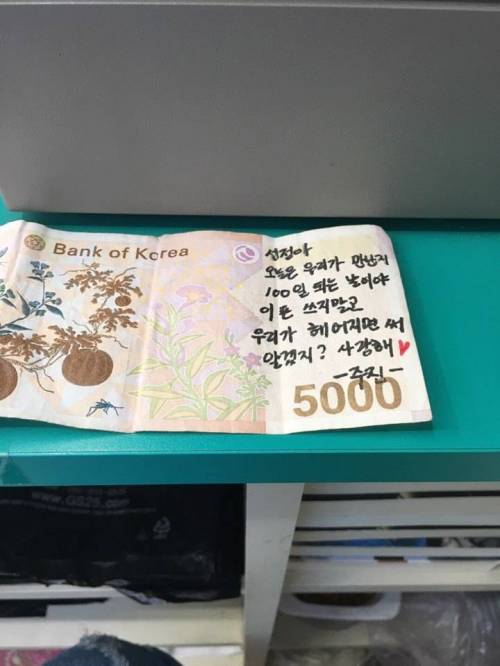 Bank of Korea
선정아
오늘은 우리가 만난지
100일 되는 날이야
이 돈 쓰지말고
우리가 헤어지면 써
알겠지? 사랑해♥
-주진-
5000
www.GS25.com